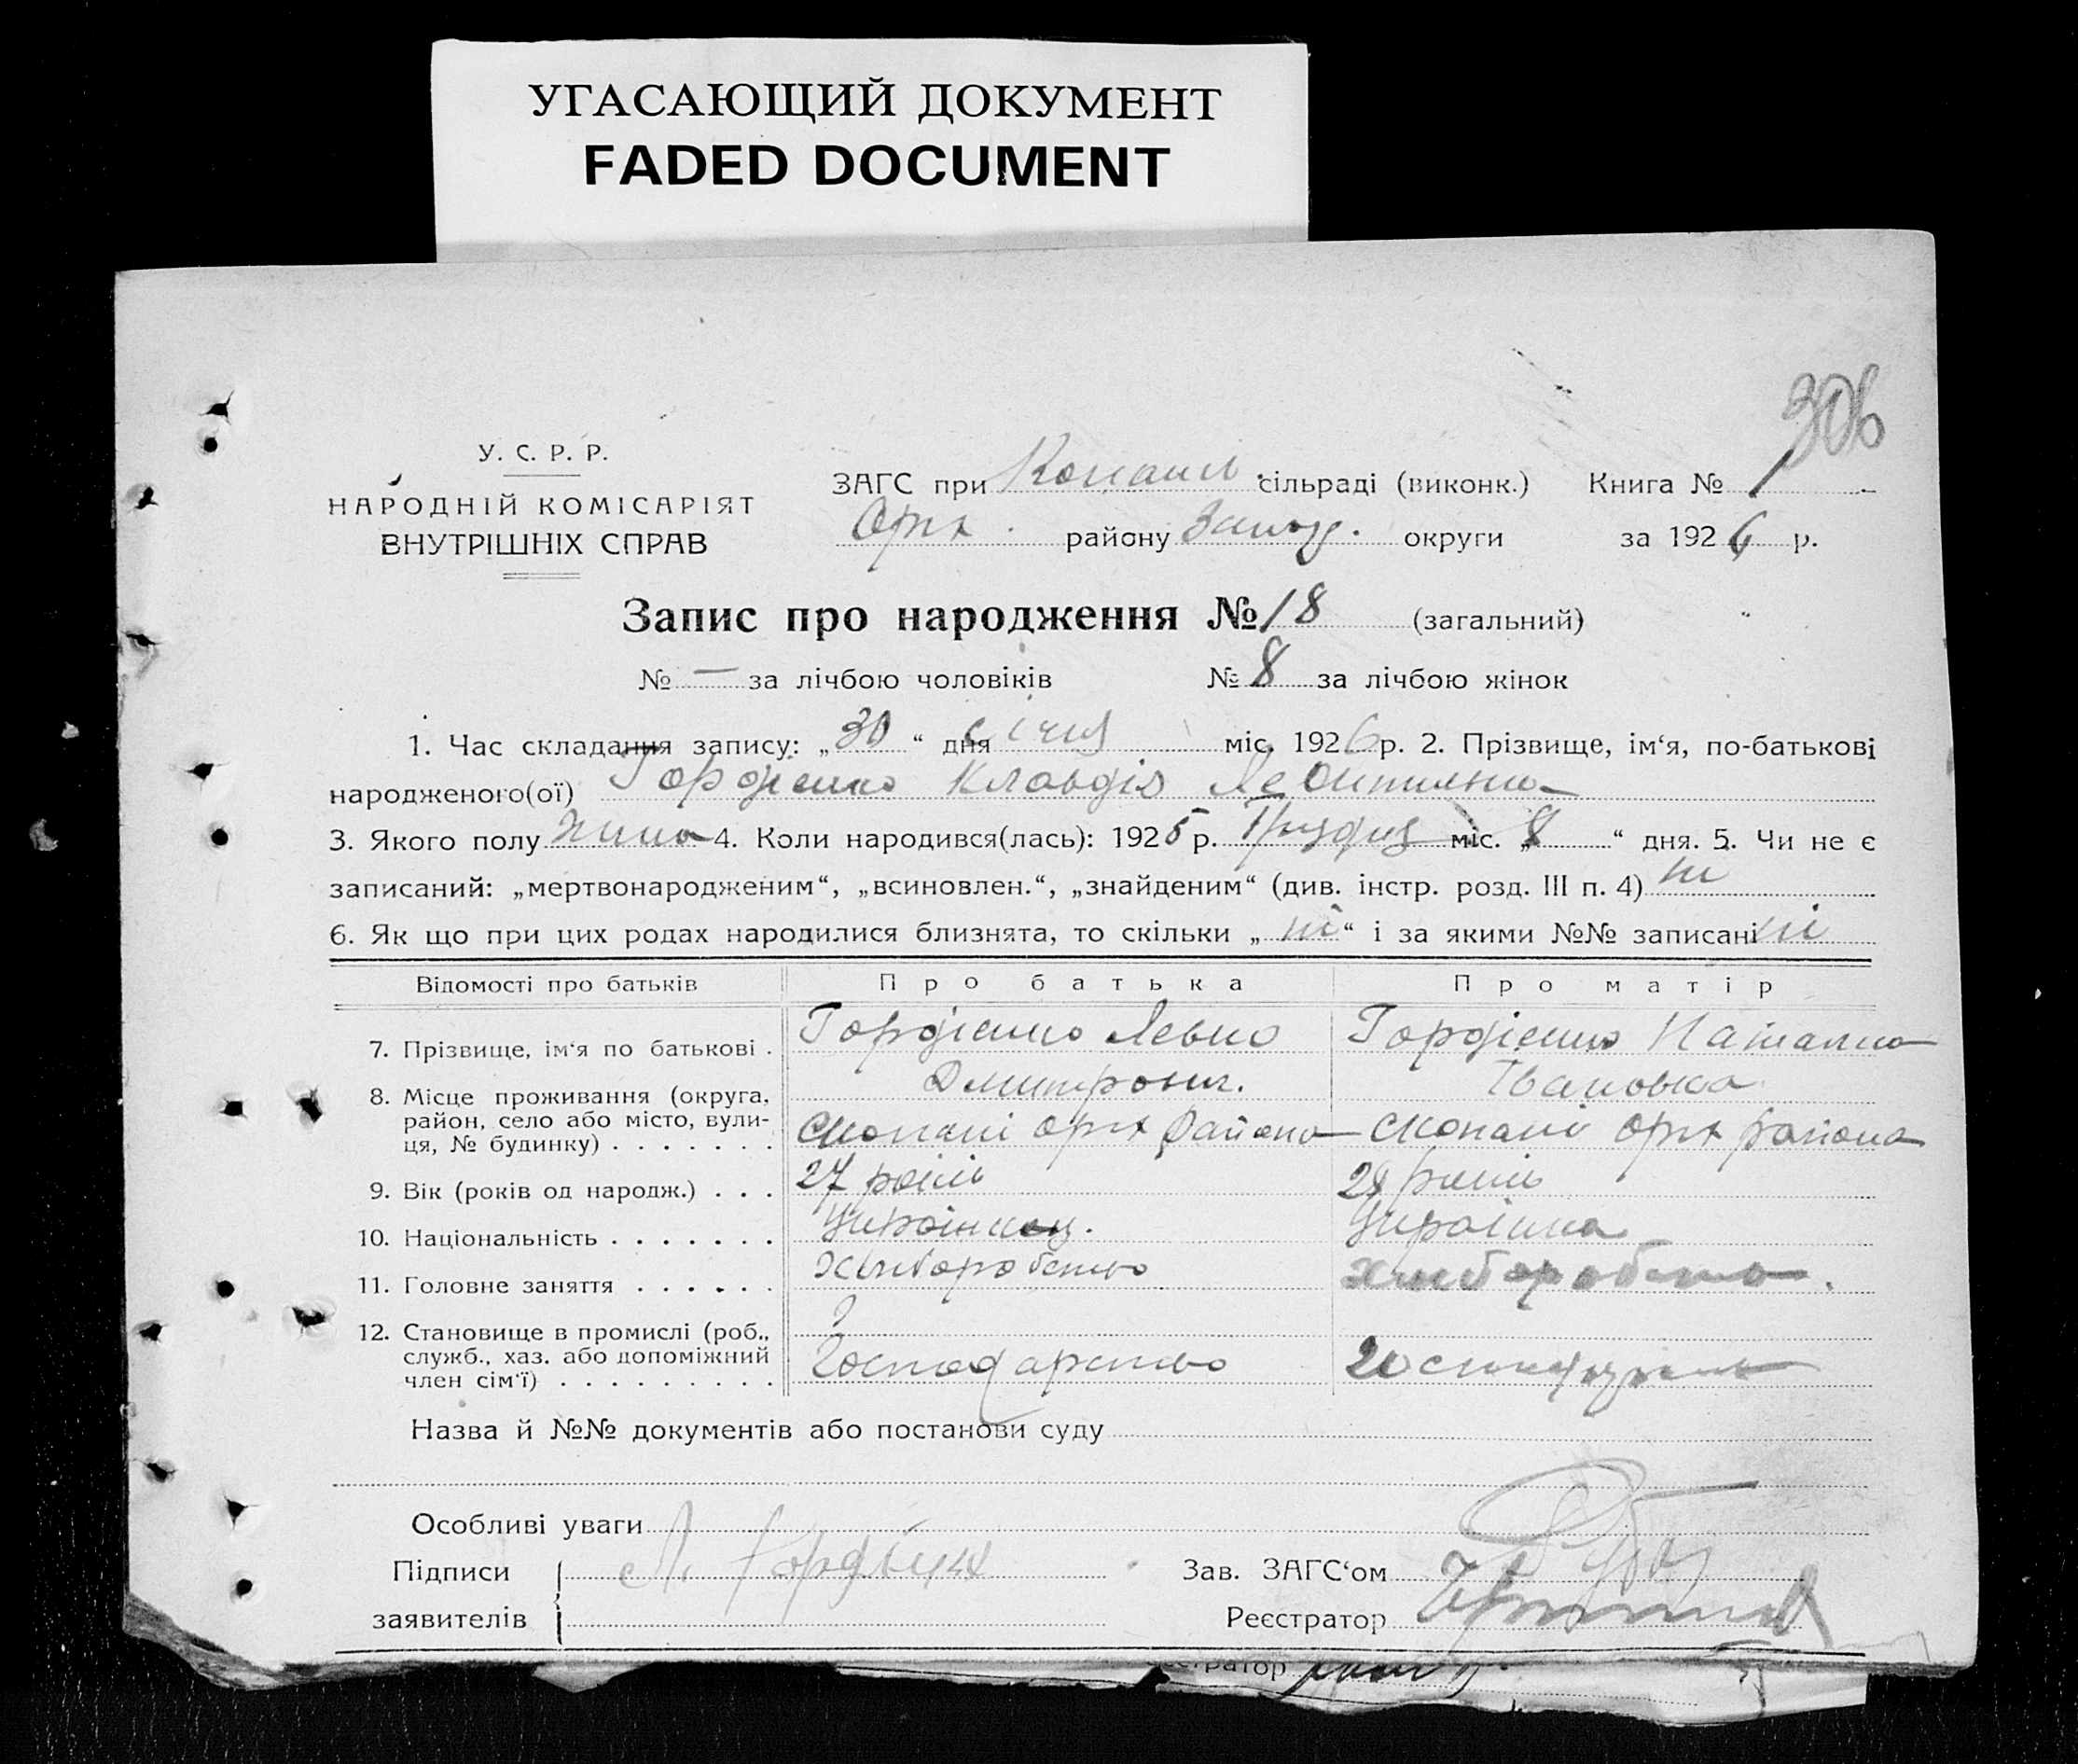 УГАСАЮЩИЙ ДОКУМЕНТ
FADED DOCUMENT
306
У. С. Р. Р.
НАРОДНІЙ КОМІСАРІЯТ
ВНУТРІШНІХ СПРАВ
ЗАГС при Копани сільраді (виконк.) Книга № 1
Оріх. району Запор. округи за 1926 р.
Запис про народження № 18 (загальний)
№ — за лічбою чоловіків № 8 за лічбою жінок
1. Час складання запису: „30“ дня січня міс. 1926 р. 2. Прізвище, ім‘я, по-батькові
народженого(ої) Гордієнко Клавдія
3. Якого полу жіно 4. Коли народився(лась): 1925 р. Грудня міс. „8“ дня. 5. Чи не є
записаний: „мертвонародженим“, „всиновлен.“, „знайденим“ (див. інстр. розд. III п. 4) ні
6. Як що при цих родах народилися близнята, то скільки „ні“ і за якими №№ записані ні
Відомості про батьків Про батька Про матір
7. Прізвище, ім‘я по батькові . Гордієнко Левко Гордієнко Наталка
Дмитрович. Івановка
8. Місце проживання (округа,
район, село або місто, вули-
ця, № будинку) . . . . . . . Копані Оріх района Копані Оріх района
9. Вік (років од народж.) . . . 27 років 28 років
10. Національність . . . . . . . Українец. Українка
11. Головне заняття . . . . . . Хліборобство Хліборобство.
12. Становище в промислі (роб.,
служб., хаз. або допоміжний
член сім‘ї) . . . . . . . . . Господарство господарство
Назва й №№ документів або постанови суду
Особливі уваги
Підписи Л. Зав. ЗАГС‘ом
заявителів Реєстратор